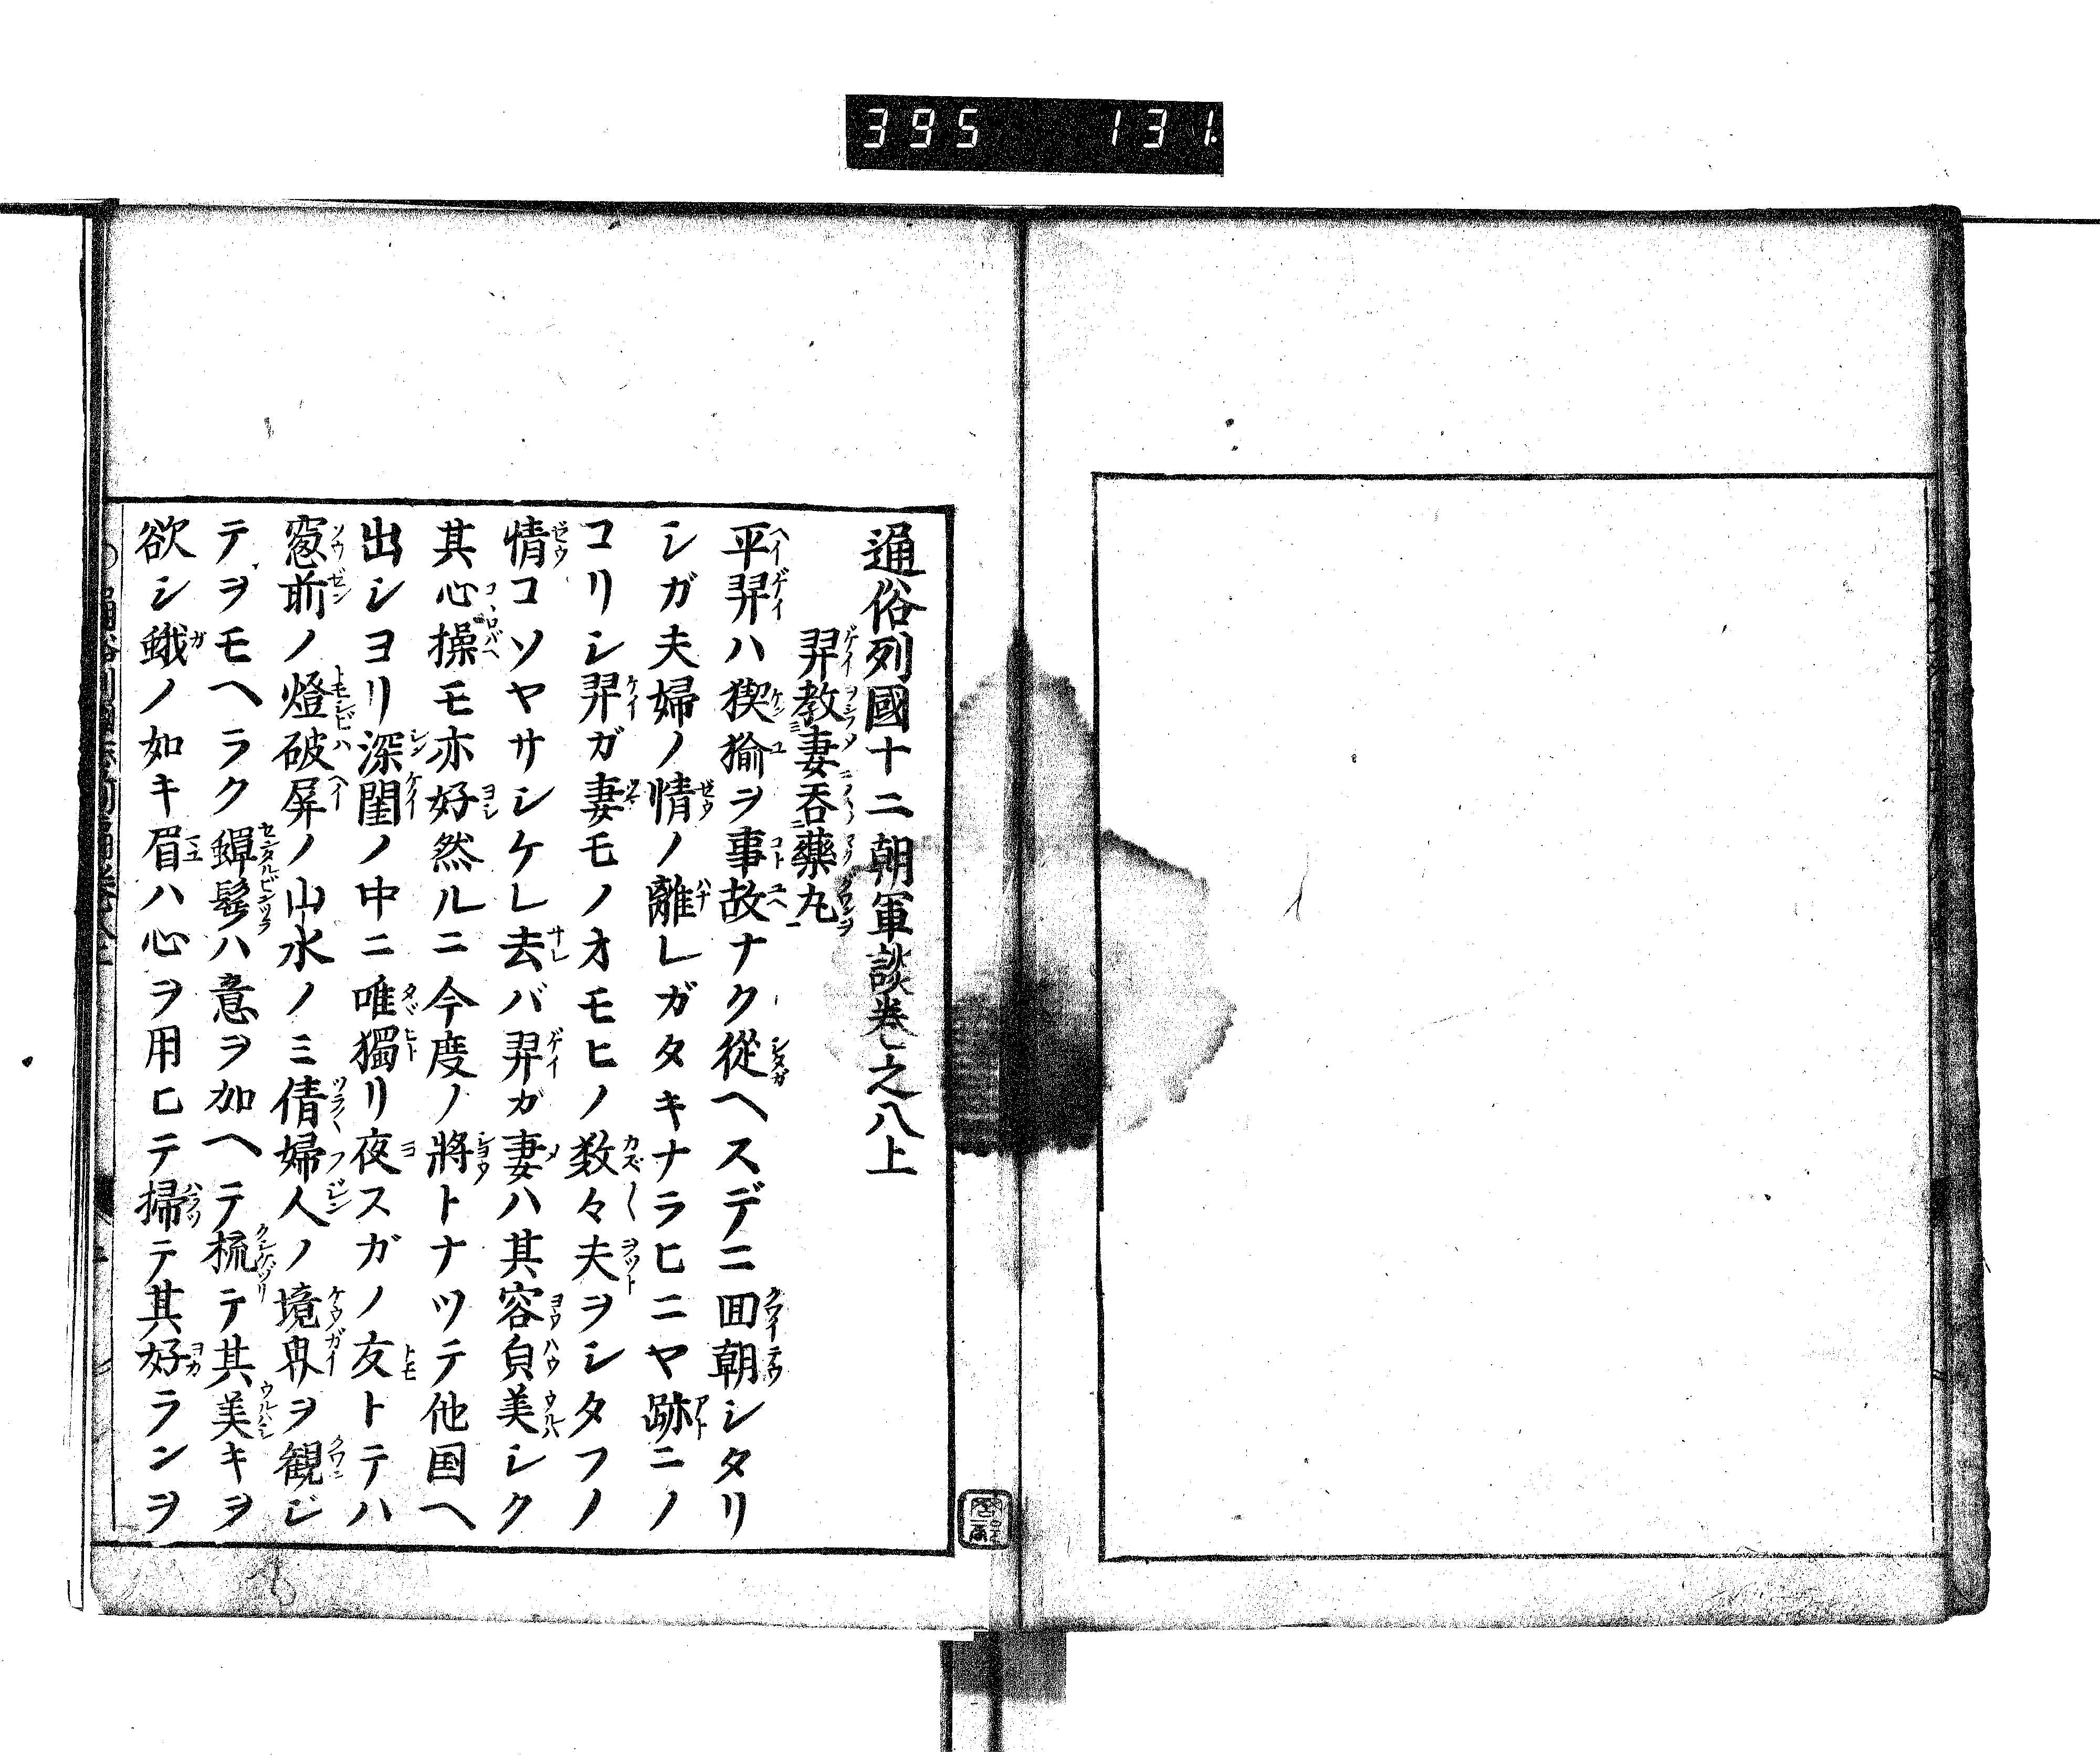 395 131
通俗列國十二朝軍談巻之八上
羿教妻吞藥丸
平羿ハ猰㺄ヲ事故ナク從ヘスデニ囬朝シタリ
シガ夫婦ノ情ノ離レガタキナラヒニヤ跡ニノ
コリシ羿ガ妻モノオモヒノ数々夫ヲシタフノ
情コソヤサシケレ去バ羿ガ妻ハ其容皃美シク
其心操モ亦好然ルニ今度ノ將トナツテ他国ヘ
出シヨリ深閨ノ中ニ唯獨リ夜スガノ友トテハ
窓前ノ燈破屏ノ山水ノミ倩婦人ノ境界ヲ観ジ
テヲモヘラク蟬髩ハ意ヲ加ヘテ梳テ其美キヲ
欲シ蛾ノ如キ眉ハ心ヲ用ヒテ掃テ其好ランヲ